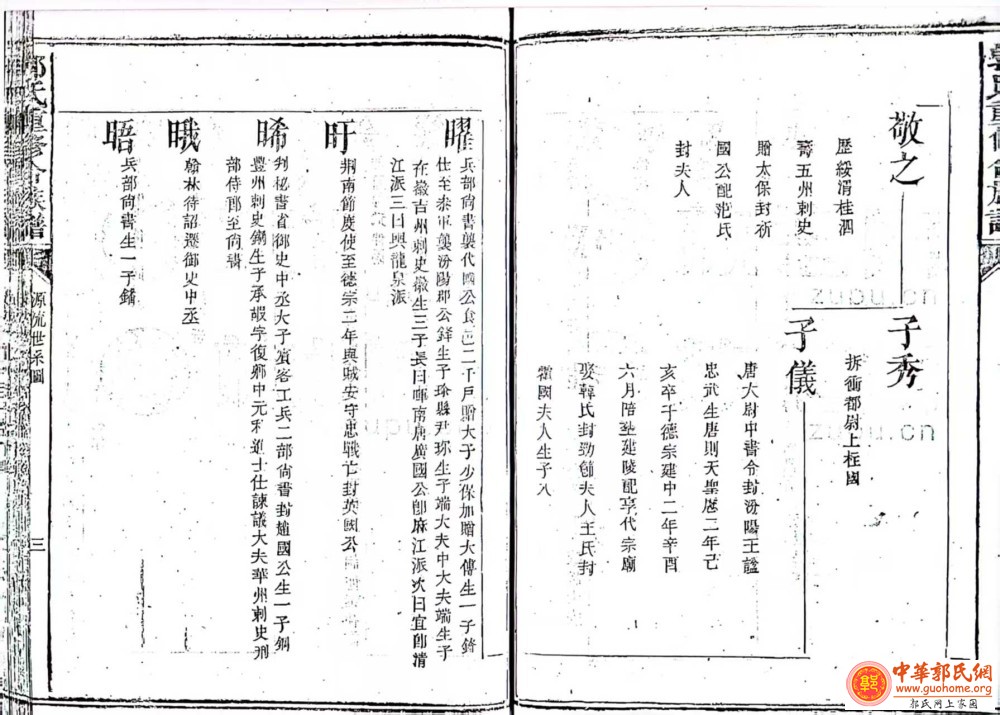 敬之
歷綏渭桂泗
壽五州刺史
贈太保封祈
國公配
氏
封夫人
子秀
折衝都尉上柱國
子儀
唐大尉中書令封汾陽王諡
忠武生唐則天聖曆二年己
亥卒于德宗建中二年辛酉
六月陪塟建陵配享代宗廟
娶韓氏封勁節夫人王氏封
霍國夫人生子八
曜
兵部尚書襲代國公食邑二千戶贈大子少保加贈大傅生一子鋒
仕至叅軍襲汾陽郡公鋒生子珍縣尹珎生子端大夫中大夫端生子
在徽吉州刺史徽生三子長曰暉南唐廣國公卽麻江派次曰宜卽清
江派三曰興龍泉派
盱
荆南節度使至德宗二年與賊安守忠戰亡封英國公
晞
判秘書省御史中丞大子賓客工兵二部尚書封趙國公生一子鋼
豐州刺史鋼生子承嘏字復鄉中元和進士仕諫議大夫華州刺史刑
部侍郎至尚書
㬂
翰林待詔遷御史中丞
晤
兵部尚書生一子鐇
郭氏重修合族譜
源流世系圖
三
郭氏重修合族譜
zupu.cn
zupu.cn
zupu.cn
中華郭氏網
www.guohome.org
郭氏网上家园